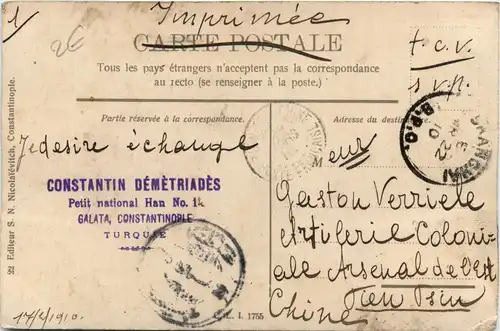 1/
Imprimée
2€
CARTE POSTALE
t.c.v.
s.v.p.
Tous les pays étrangers n'acceptent pas la correspondance
au recto (se renseigner à la poste.)
Partie réservée à la correspondance.
Adresse du
SHANGHAI
B.P.O.
Je desire échange
Monsieur
CONSTANTIN DÉMÈTRIADÈS
Petit national Han No. 14
GALATA, CONSTANTINOPLE
TURQUIE
Gaston Verriele
Artilerie Coloni-
ale Arsenal de l'Est
Tien Tsin
Chine
17/2/1910.
I. 1755
22 Editeur S. N. Nicolaïévitch, Constantinople.